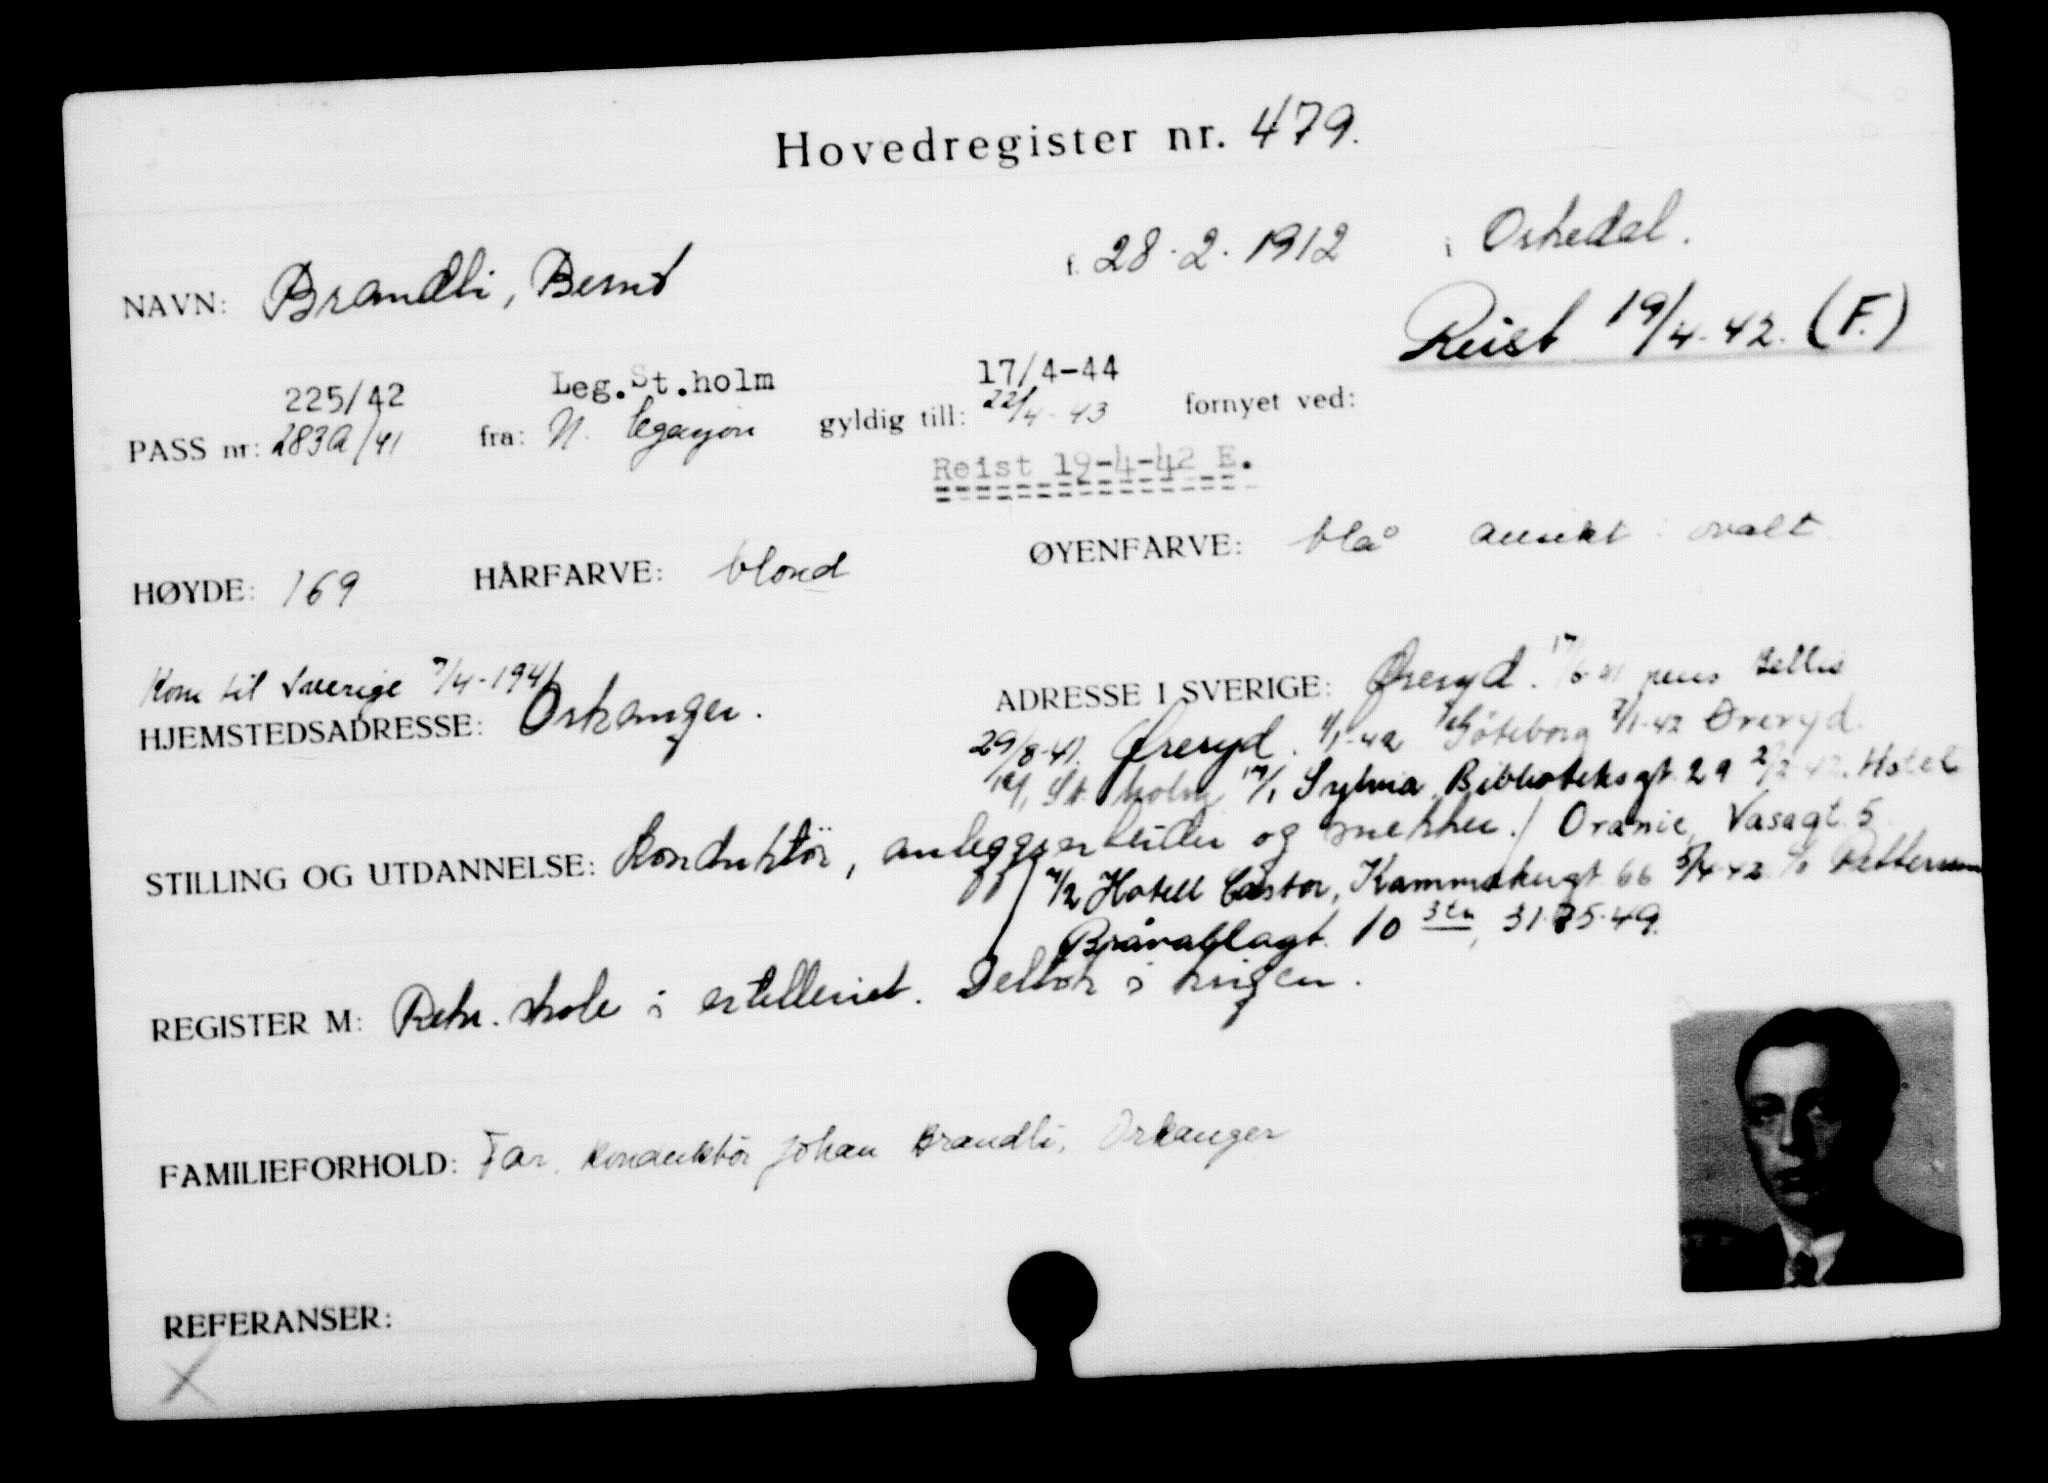 Hovedregister nr. 479.
NAVN: Brandli, Bernt f. 28.2.1912 i Orkedal.
Reist 19/4-42. (F.)
225/42 Leg.St.holm 17/4-44
PASS nr: 283A/41 fra: N. legasjon gyldig till: 22/4-43 fornyet ved:
Reist 19-4-42 E.
HØYDE: 169 HÅRFARVE: blond ØYENFARVE: blå ansikt: ovalt
Kom til Sverige 7/4-1941
HJEMSTEDSADRESSE: Orkanger. ADRESSE I SVERIGE: Øreryd. 17/6-41 pens
29/8-41. Øreryd. 1/1-42 Göteborg 7/1-42 Øreryd.
St.holm 17/1 Sylvia, Biblioteksgt. 29 2/2-42. Hotel
STILLING OG UTDANNELSE: konduktör, anleggsarbeider og snekker. / Oranie, Vasagt. 5
Hotell Castor, Kammakergt. 66 5/4-42 c/o Pettersson
Bråvallagt. 10 3 tr, 31.75.49.
REGISTER M: Rekr. skole i artilleriet. Deltok i krigen.
FAMILIEFORHOLD: Far, konduktör Johan Brandli, Orkanger
REFERANSER:
X